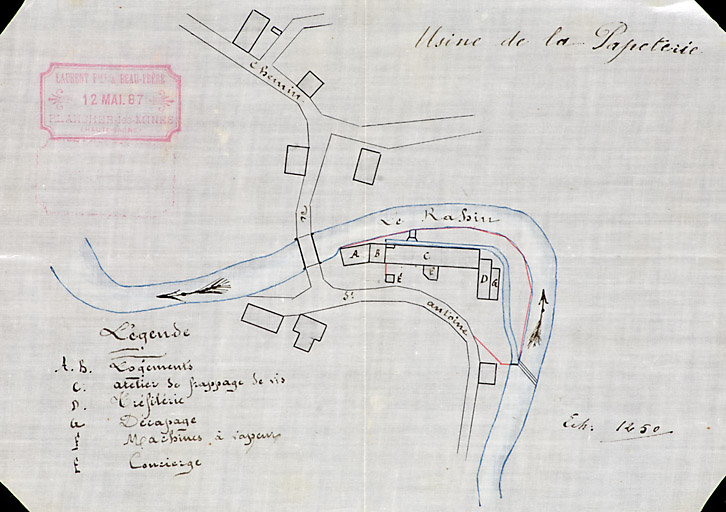 Usine de la Papeterie
LAURENT Père & BEAU-FRÈRE
12 MAI. 87
PLANCHER-LES-MINES
Chemin
de
Le Rahin
A
B
C.
E
F
D
G
St
antoine
Légende
A. B. Logements
C. atelier de frappage de vis
D. Tréfilerie
G Décapage
F Machines à vapeur
E Concierge
Ech: 1250